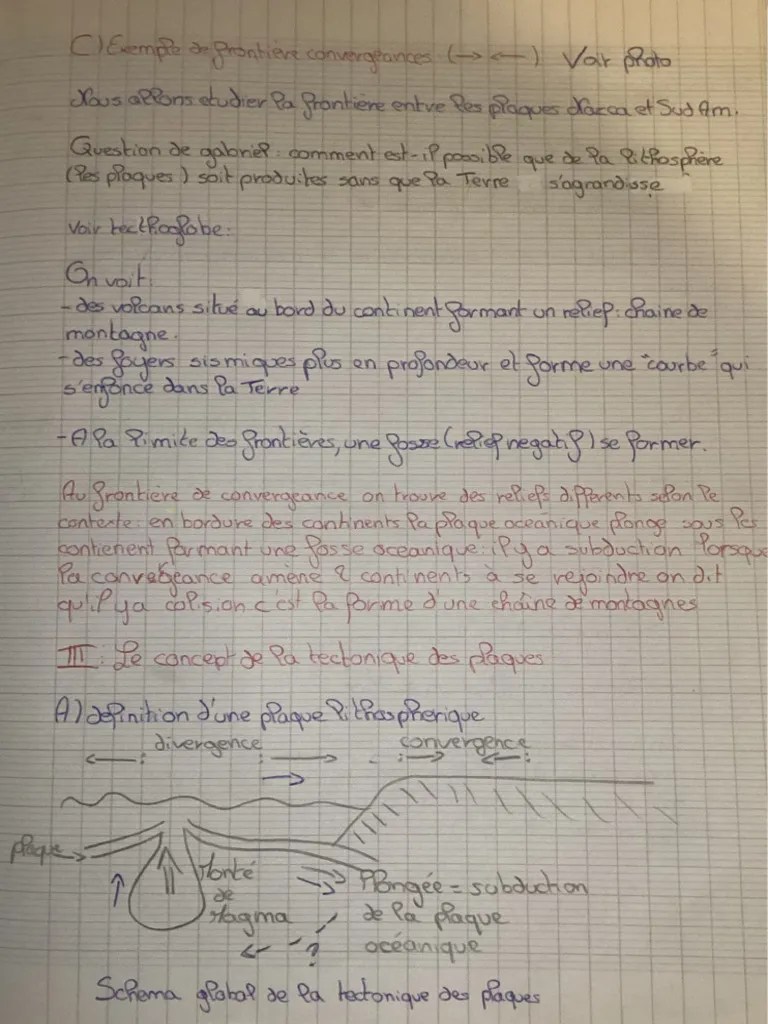 C) Exemple de frontière convergeances (→ ←) Voir photo
Nous allons etudier la frontière entre les plaques Nazca et Sud Am.
Question de gabriel : comment est-il possible que de la lithosphère
(les plaques) soit produites sans que la Terre s'agrandisse
Voir tecthoglobe:
On voit:
- des volcans situé au bord du continent formant un relief : chaine de
montagne.
- des foyers sismiques plus en profondeur et forme une "courbe" qui
s'enfonce dans la Terre
- A la limite des frontières, une fosse (relief negatif) se former.
Au frontière de convergeance on trouve des reliefs differents selon le
contexte : en bordure des continents la plaque oceanique plonge sous les
contienent formant une fosse oceanique : il y a subduction lorsque
la convergeance amène 2 continents à se rejoindre on dit
qu'il y a colision c'est la forme d'une chaîne de montagnes
III : Le concept de la tectonique des plaques
A) définition d'une plaque lithospherique
divergence convergence
plaque
Monté
de
Magma
Plongée = subduction
de la plaque
océanique
?
Schema global de la tectonique des plaques